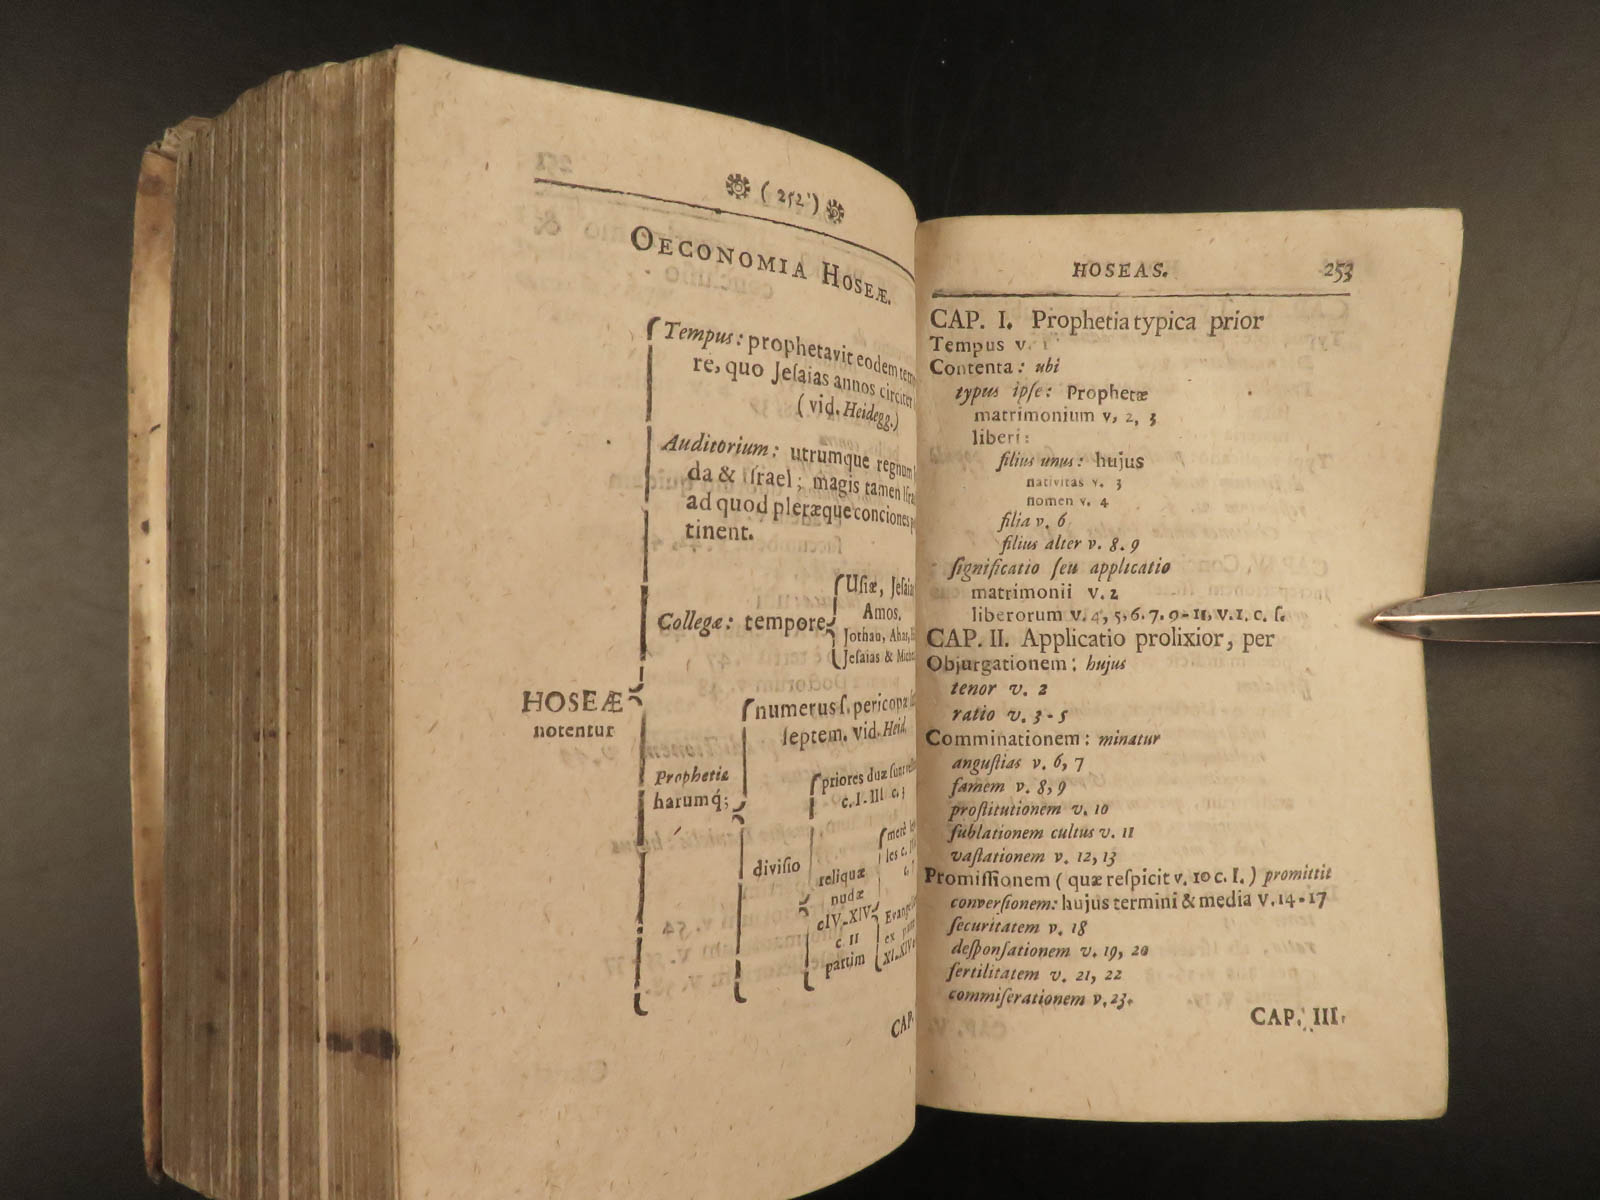 ( 252 )
OECONOMIA HOSEÆ.
Tempus: prophetavit eodem
re, quo Jeſaias annos circiter
( vid. Heidegg.)
Auditorium: utrumque regnum
da & Iſrael; magis tamen
ad quod pleræque conciones
tinent.
Collegæ: tempore
Uſiæ,
Amos.
Jothan, Ahas,
Jeſaias &
HOSEÆ
notentur
Prophetiæ
harumq́;
numerus ſ. pericopæ
ſeptem. vid. Heid.
diviſio
priores duæ ſunt
c. I. III
reliquæ
nudæ
cIV-XIV
c. II
partim
merè
les c.
ex
CAP.
HOSEAS. 253
CAP. I. Prophetia typica prior
Tempus v. 1
Contenta: ubi
typus ipſe: Prophetæ
matrimonium v, 2, 3
liberi:
filius unus: hujus
nativitas v. 3
nomen v. 4
filia v. 6
filius alter v. 8. 9
ſignificatio ſeu applicatio
matrimonii v. 2
liberorum v. 4, 5, 6. 7. 9-11, v. 1. c. ſ.
CAP. II. Applicatio prolixior, per
Objurgationem: hujus
tenor v. 2
ratio v. 3-5
Comminationem: minatur
anguſtias v. 6, 7
famem v. 8, 9
proſtitutionem v. 10
ſublationem cultus v. 11
vaſtationem v. 12, 13
Promiſſionem ( quæ reſpicit v. 10 c. I. ) promittit
converſionem: hujus termini & media v. 14-17
ſecuritatem v. 18
deſponſationem v. 19, 20
fertilitatem v. 21, 22
commiſerationem v. 23.
CAP. III.